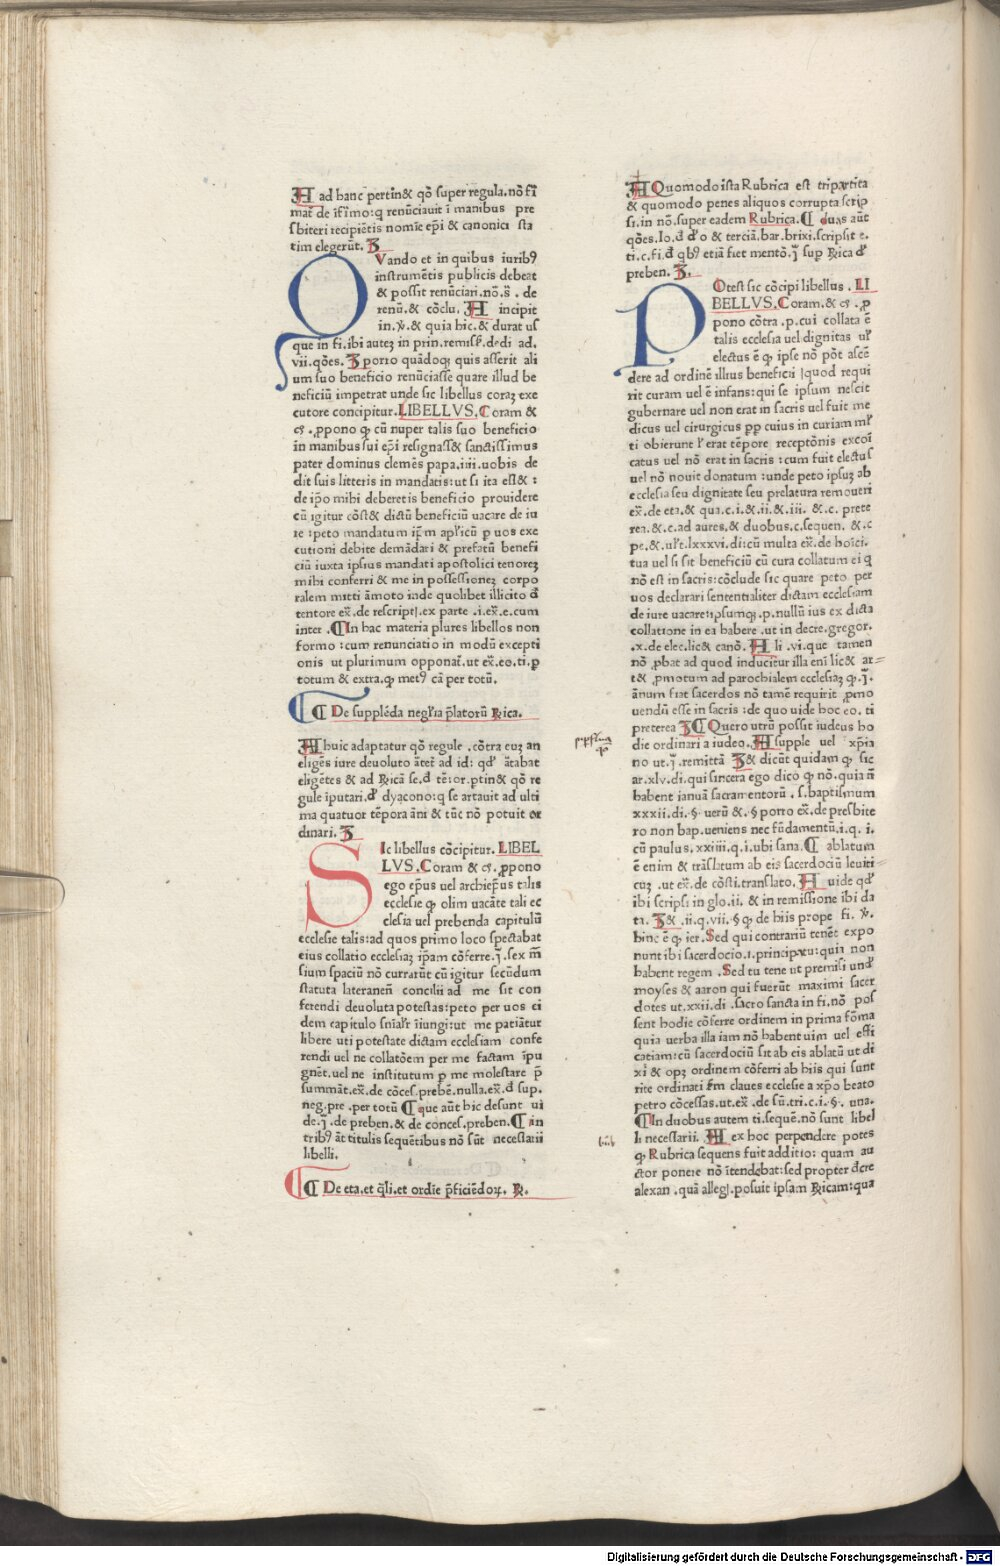 Ad hanc pertin& qō super regula. nō fi
mař de ĩfĩmo: q renũciauit ĩ manibus pre
sbiteri recipiẽtis nomĩe epĩ & canonici sta
tim elegerũt.
QVando et in quibus iurib9
instrumẽtis publicis debeat
& possit renũciari. nō. s̃. de
renũ. & cōclu. A incipit
in. ℣. & quia hic. & durat us
que in fi. ibi autez in prin. remisi. dedi ad.
vii. qōes. porro quãdoqz quis asserit ali
um suo beneficio renũciasse quare illud be
neficiũ impetrat unde sic libellus coraz exe
cutore concipitur. LIBELLVS. Coram &
cꝫ. ꝓpono ꝙ cũ nuper talis suo beneficio
in manibus sui epĩ resignass& sanctissimus
pater dominus clemẽs papa. iiii. uobis de
dit suis litteris in mandatis: ut si ita est& :
de ip̃o mihi deberetis beneficio prouidere
cũ igitur cōst& dictũ beneficiũ uacare de iu
re : peto mandatum ip̃m apl̃icũ p uos exe
cutioni debite demãdari & prefatũ benefi
ciũ iuxta ipsius mandati apostolici tenorez
mihi conferri & me in possessionez corpo
ralem mitti ãmoto inde quolibet illicito đ
tentore ex̃. de rescriptꝭ. ex parte .i. ex̃. e. cum
inter . ¶ In hac materia plures libellos non
formo : cum renunciatio in modũ excepti
onis ut plurimum opponat̃. ut ex̃. eo. ti. ꝑ
totum & extra. ꝙ met9 cã per totũ.
¶ De supplẽda negl̃ia p̃latorũ Rica.
A huic adaptatur qō regule . cōtra euz an
eligẽs iure deuoluto ãteã ad id: qđ ãtabat
eligẽtes & ad Ricã se. đ tẽ: or. ptin& qō re
gule ĩputari. đ dyacono: q se artauit ad ulti
ma quatuor tẽpora ãni & tũc nō potuit or
dinari.
SIc libellus cōcipitur. LIBEL
LVS. Coram & cꝫ. ꝓpono
ego ep̃us uel archiep̃us talis
ecclesie ꝙ olim uacãte tali ec
clesia uel prebenda capitulũ
ecclesie talis: ad quos primo loco spectabat
eius collatio ecclesiaz ip̃am cōferre. ꝭ. sex m̃
sium spaciũ nō currarũt cũ igitur secũdum
statuta lateraneñ concilii ad me sit con
ferendi deuoluta potestas: peto per uos ei
dem capitulo sñial̃r ĩiungi: ut me patiãtur
libere uti potestate dictam ecclesiam confe
rendi uel ne collatōem per me factam ĩpu
gnẽt. uel ne institutum p me molestare p̃
summãt. ex̃. de cōces. prebẽ. nulla. ex̃. đ sup.
neg. pre . per totũ ¶ que aũt hic desunt ui
de. ꝭ. de preben. & de conces. preben. ¶ in
trib9 ãt titulis sequẽtibus nō sũt necessarii
libelli.
¶ De eta. et q̃li. et ordĩe p̃ficiẽdoꝝ. R.
A Quomodo ista Rubrica est tripartita
& quomodo penes aliquos corrupta scrip
si. in nō. super eadem Rubrica. ¶ duas aũt
qōes. Io. đ đ o & terciã. bar. brixi. scripsit e.
ti. c. fi. đ qb9 etiã fiet mentō. ꝭ sup Rica đ
preben.
POtest sic cōcipi libellus . LI
BELLVS. Coram. & cꝫ . ꝓ
pono cōtra . p. cui collata ẽ
talis ecclesia uel dignitas ul̃
electus ẽ ꝙ ipse nō pōt ascẽ
dere ad ordinẽ illius beneficii quod requi
rit curam uel ẽ infans: qui se ipsum nescit
gubernare uel non erat in sacris uel fuit me
dicus uel cirurgicus pp cuius in curiam ml̃
ti obierunt l̃ erat tẽpore receptōnis excoĩ
catus uel nō erat in sacris : cum fuit electus
uel nō nouit donatum : unde peto ipsuz ab
ecclesia seu dignitate seu prelatura remoueri
ex̃. de eta. & qua. c. i. & ii. & iii. & c. prete
rea. & c. ad aures. & duobus. c. sequen. & c
pe. & ul̃t. lxxxvi. di: cũ multa ex̃. de hoĩci.
tua uel si sit beneficiũ cũ cura collatum ei q
nō est in sacris: cōclude sic quare peto per
uos declarari sententialiter dictam ecclesiam
de iure uacare: ipsumqz. p. nullũ ius ex dicta
collatione in ea habere . ut in decre. gregor.
.x. de elec. lic& canō. A li .vi. que tamen
nō ꝓbat ad quod inducitur illa eni lic& ar=
t& ꝓmotum ad parochialem ecclesiaz ꝙ. ꝭ.
ãnum fiat sacerdos nō tamẽ requirit ꝓmo
uendũ esse in sacris : de quo uide hoc eo. ti
preterea ¶ Quero utrũ possit iudeus ho
die ordinari a iudeo. A supple uel xp̃ia
no ut. ꝭ. remittã & dicũt quidam ꝙ sic
ar. xlv. di. qui sincera ego dico ꝙ nō. quia ñ
habent ianuã sacramentorũ . s. baptismum
xxxii. di. §. uerũ & . § porro ex̃. de presbite
ro non bap. ueniens nec fũdamentũ. i. q. i.
cũ paulus. xxiiii. q. i. ubi sana. ¶ ablatum
ẽ enim & trãslatum ab eis sacerdociũ leuiti=
cuz .ut ex̃. de cōsti. translato. A uide qđ
ibi scripsi in glo. ii. & in remissione ibi da
ta. & .ii. q. vii. § ꝙ de hiis prope fi. ℣.
hinc ẽ ꝙ ier. Sed qui contrariũ tenẽt expo
nunt ibi sacerdocio. i. principatu: quia non
habent regem . Sed tu tene ut premisi unđ
moyses & aaron qui fuerũt maximi sacer
dotes ut. xxii. di . sacro sancta in fi. nō pos
sent hodie cōferre ordinem in prima fōma
quia uerba illa iam nō habent uim uel effi
catiam: cũ sacerdociũ sit ab eis ablatũ ut di
xi & opz ordinem cōferri ab hiis qui sunt
rite ordinati f̃m claues ecclesie a xp̃o beato
petro cōcessas. ut. ex̃. de sũ. tri. c. i. §. una.
¶ In duobus autem ti. sequẽ. nō sunt libel
li necessarii. A ex hoc perpendere potes
ꝙ Rubrica sequens fuit additio: quam au
ctor ponere nō ĩtendebat: sed propter đcre
alexan . quã allegꝭ. posuit ipsam Ricam: qua
Digitalisierung gefördert durch die Deutsche Forschungsgemeinschaft - DFG